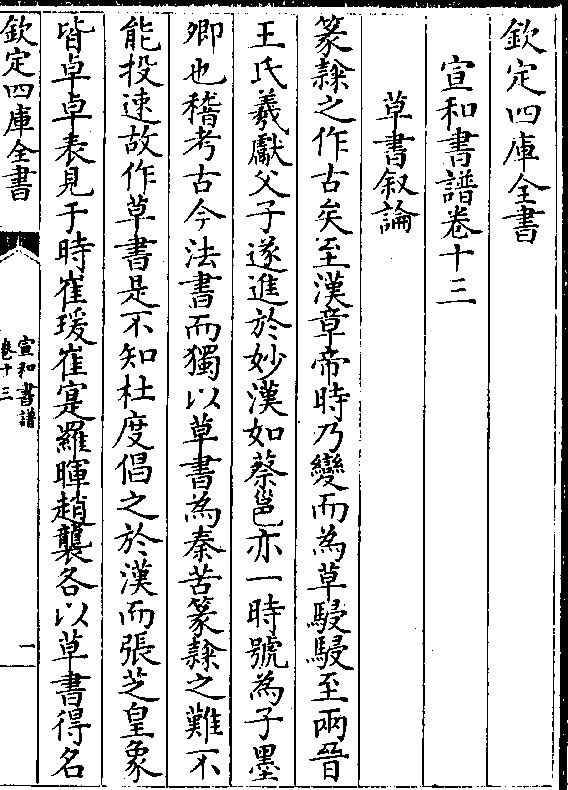 欽定四庫全書
宣和書譜卷十三
草書叙論
篆隸之作古矣至漢章帝時乃變而為草駸駸至兩晉
王氏羲獻父子遂進於妙漢如蔡邕亦一時號為子墨
卿也稽考古今法書而獨以草書為秦苦篆隸之難不
能投速故作草書是不知杜度倡之於漢而張芝皇象
皆卓卓表見于時崔瑗崔寔羅暉趙襲各以草書得名
欽定四庫全書
宣和書譜
卷十三
一